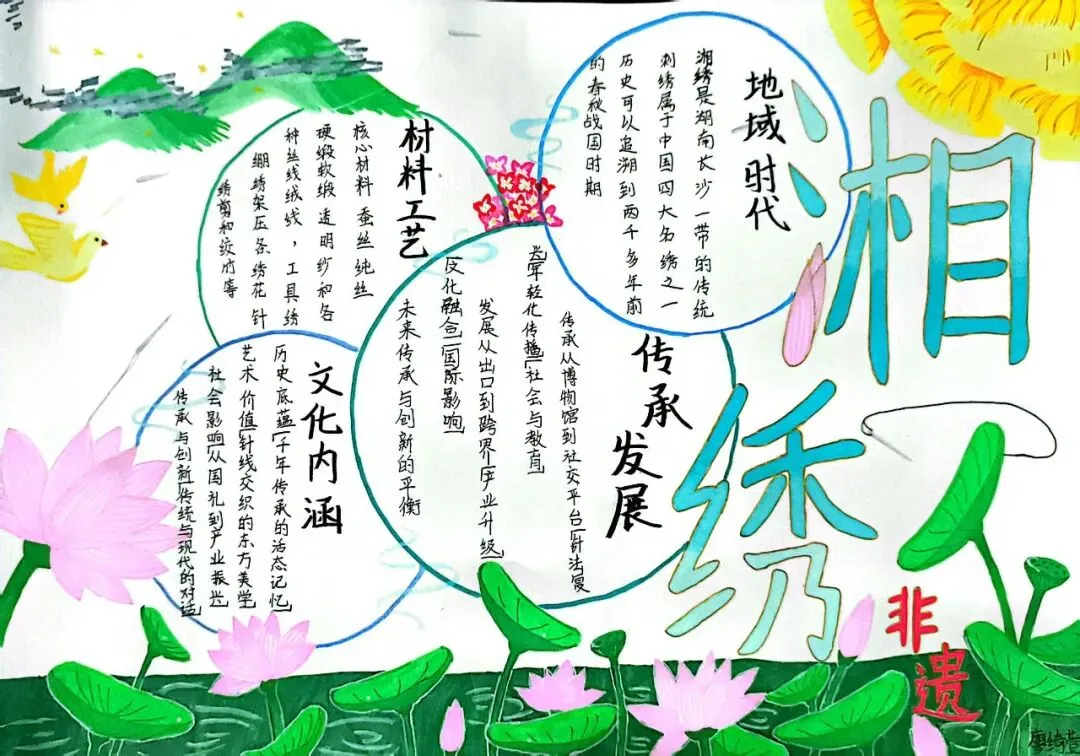 湘绣
非遗
地域时代
湘绣是湖南长沙一带的传统
刺绣属于中国四大名绣之一
历史可以追溯到两千多年前
的春秋战国时期
材料工艺
核心材料 蚕丝纯丝
硬缎软缎透明纱和各
种丝线绒线，工具绣
绷绣架压条绣花针
绣剪和绞府等
传承发展
传承从博物馆到社交平台[针法复
年轻化传播[社会与教育]
发展从出口到跨界[产业升级]
[文化融合][国际影响]
未来传承与创新的平衡
文化内涵
历史底蕴[千年传承的活态记忆]
艺术价值[针线交织的东方美学]
社会影响[从国礼到产业振兴]
传承与创新[传统与现代的对话]